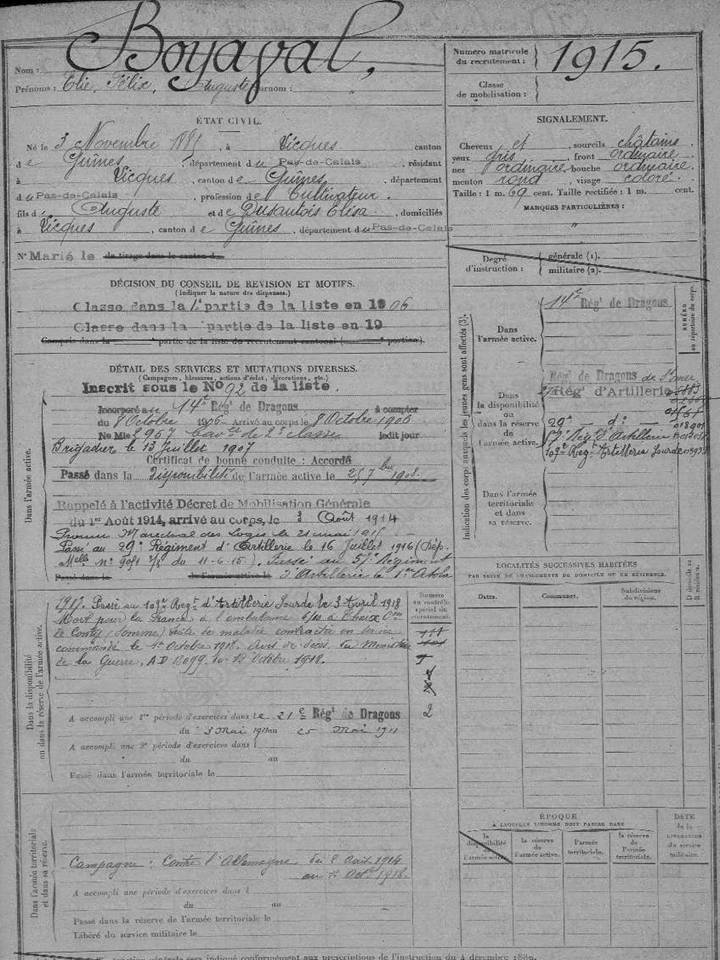 Nom : Boyaval,
Prénoms : Elie, Félix, Auguste surnom :
Numéro matricule du recrutement : 1915.
Classe de mobilisation :
ÉTAT CIVIL.
Né le 3 Novembre 188 , à Vicques canton
de Guînes, département du Pas-de-Calais, résidant
à Vicques, canton de Guînes, département
du Pas-de-Calais, profession de Cultivateur
fils d'Auguste et de Elisa, domiciliés
à Vicques, canton de Guînes, département du Pas-de-Calais
N° Marié le du tirage dans le canton d
SIGNALEMENT.
Cheveux et sourcils châtains
yeux gris front ordinaire
nez ordinaire bouche ordinaire
menton rond visage coloré
Taille : 1 m. 69 cent. Taille rectifiée : 1 m. cent.
MARQUES PARTICULIÈRES :
"
Degré d'instruction : générale (1).
militaire (2).
DÉCISION DU CONSEIL DE REVISION ET MOTIFS.
(Indiquer la nature des dispenses.)
Classé dans la 1e partie de la liste en 1906
Classé dans la partie de la liste en 19
Compris dans la partie de la liste du recrutement cantonal ( portion).
DÉTAIL DES SERVICES ET MUTATIONS DIVERSES.
(Campagnes, blessures, actions d'éclat, décorations, etc.)
Inscrit sous le N° 92 de la liste
Incorporé au 14e Régt de Dragons à compter
du 8 Octobre 1906. Arrivé au corps le 8 Octobre 1906
No Mle 2957 Cavr de 2e classe ledit jour
Brigadier le 13 juillet 1907
Certificat de bonne conduite : Accordé
Passé dans la disponibilité de l'armée active le 25 7bre 1908.
Rappelé à l'activité Décret de Mobilisation Générale
du 1er Août 1914, arrivé au corps, le 3 Août 1914
Promu Maréchal des Logis le 21 mai
Passé au 29e Régiment d'Artillerie le 16 juillet 1916
Melle n° du 11-6-15). Passé au 57e Régiment
d'Artillerie le 1er Octobre
1917. Passé au 103e Régt d'Artillerie lourde le 3 Avril 1918
Mort pour la France à l'ambulance
de Conty (Somme) suite de maladie contractée en service
commandé le 1er Octobre 1918. Avis de décès du Ministère
de la Guerre, AD 13099 du 14 Octobre 1918.
A accompli une 1re période d'exercices dans le 21e Régt de Dragons
du 3 Mai 1911 au 25 Mai 1911
A accompli une 2e période d'exercices dans l
du au
Passé dans l'armée territoriale le
Campagne : Contre l'Allemagne du 2 Août 1914
au 1er Octe 1918.
A accompli une période d'exercices dans l
du au
Passé dans la réserve de l'armée territoriale le
Libéré du service militaire le
Dans l'armée active.
Dans la disponibilité ou dans la réserve de l'armée active.
Dans l'armée territoriale et dans sa réserve.
Numéro au contrôle spécial du recrutement.
2
Indication des corps auxquels les jeunes gens sont affectés (3).
NUMÉRO au répertoire du corps.
Dans l'armée active.
14e Régt de Dragons
Dans la disponibilité ou dans la réserve de l'armée active.
Régt de Dragons de St Omer
27e Régt d'Artillerie
29e d°
57e Régt d'Artillerie
103e Régt Artillerie lourde
Dans l'armée territoriale et dans sa réserve.
LOCALITÉS SUCCESSIVES HABITÉES
PAR SUITE DE CHANGEMENTS DE DOMICILE OU DE RÉSIDENCE.
Dates. Communes. Subdivisions de région. D domicile ou R résidence.
ÉPOQUE
À LAQUELLE L'HOMME DOIT PASSER DANS
la disponibilité de l'armée active. la réserve de l'armée active. l'armée territoriale. la réserve de l'armée territoriale.
DATE de la LIBÉRATION DU SERVICE militaire.